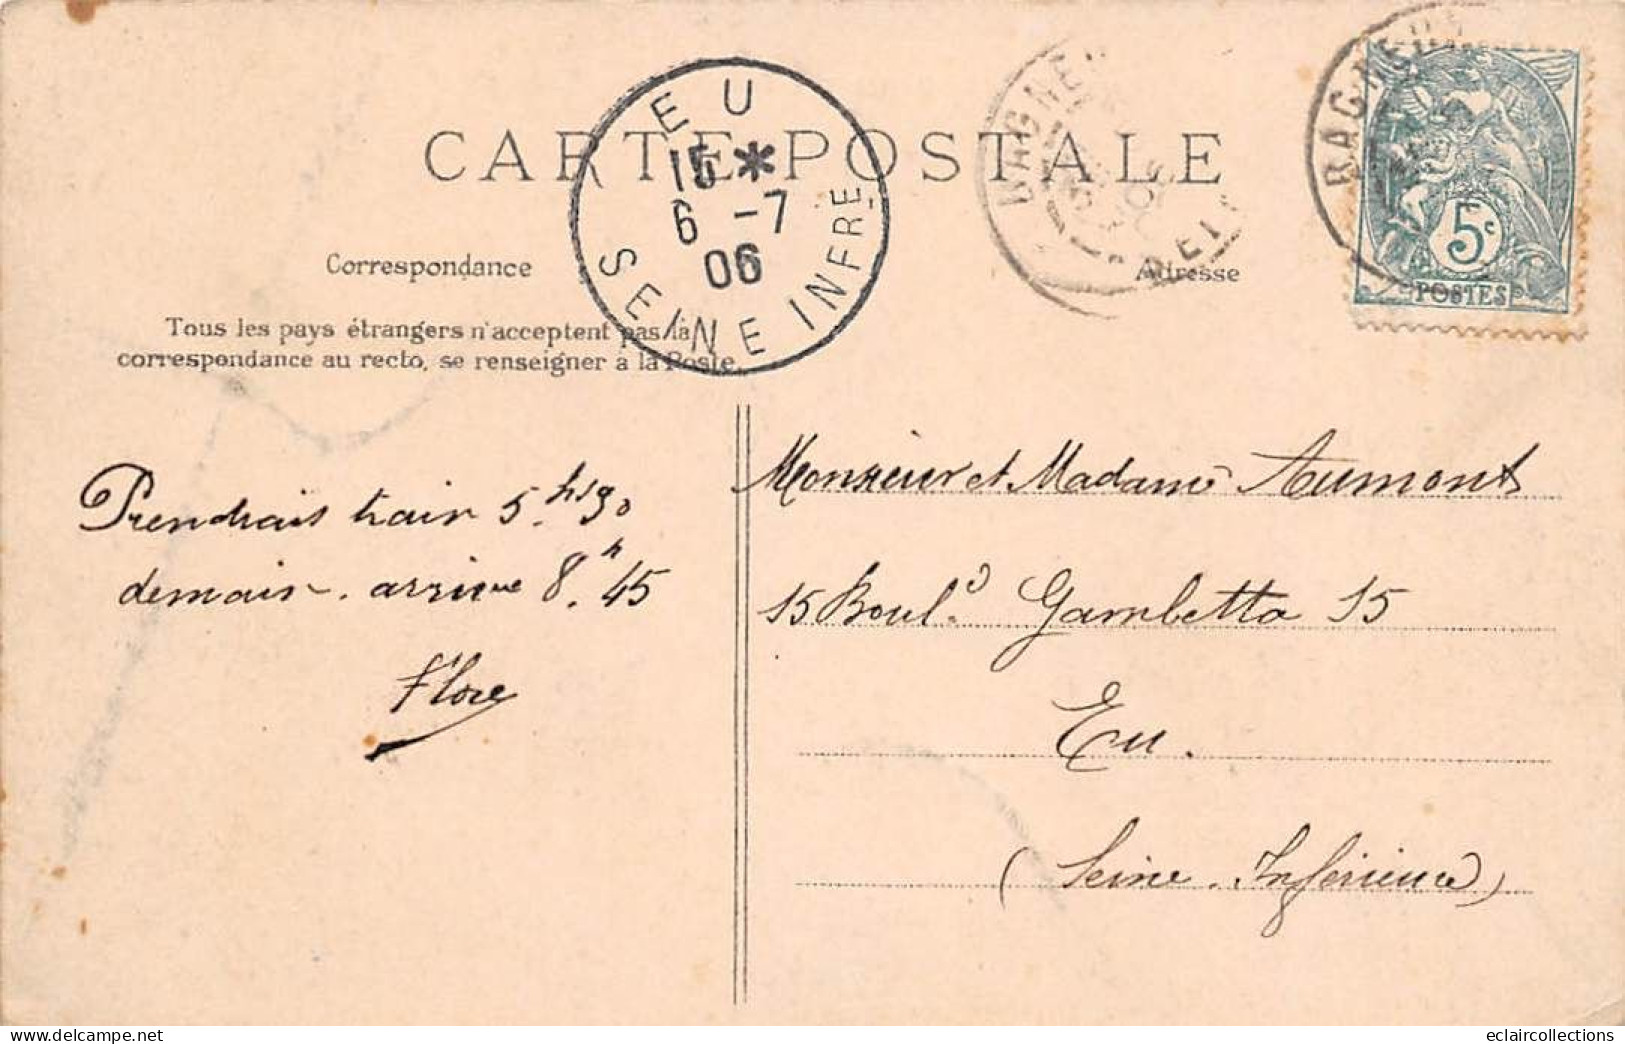 CARTE POSTALE
EU
15 *
6 -7
06
SEINE INFRE
BAGNEUX
BAGNEUX
5c
POSTES
Correspondance
Adresse
Tous les pays étrangers n'acceptent pas la
correspondance au recto, se renseigner à la Poste.
Prendrais train 5h
demain. arrive 8h.45
Flore
Monsieur et Madame Aumont
15 Boul.d Gambetta 15
Eu.
(Seine-Inférieure)
eclaircollections